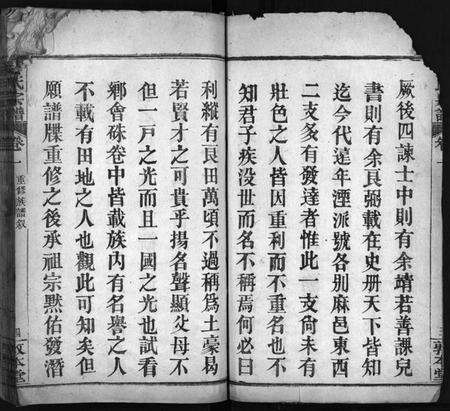 厥後四諫士中則有余靖若善課兒
書則有余良弼載在史冊天下皆知
迄今代遠年湮派號各別麻邑東西
二支亥有發達者惟此一支尙未有
壯色之人皆因重利而不重名也不
知君子疾没世而名不稱焉何必曰
利縱有良田萬頃不過稱爲土豪曷
若賢才之可貴乎揚名聲顯父母不
但一戸之光而且一國之光也試看
鄉會硃卷中皆載族内有名譽之人
不載有田地之人也觀此可知矣但
願譜牒重修之後承祖宗默佑發潛
氏宗譜
卷一
重修族譜敘
四
敦本堂